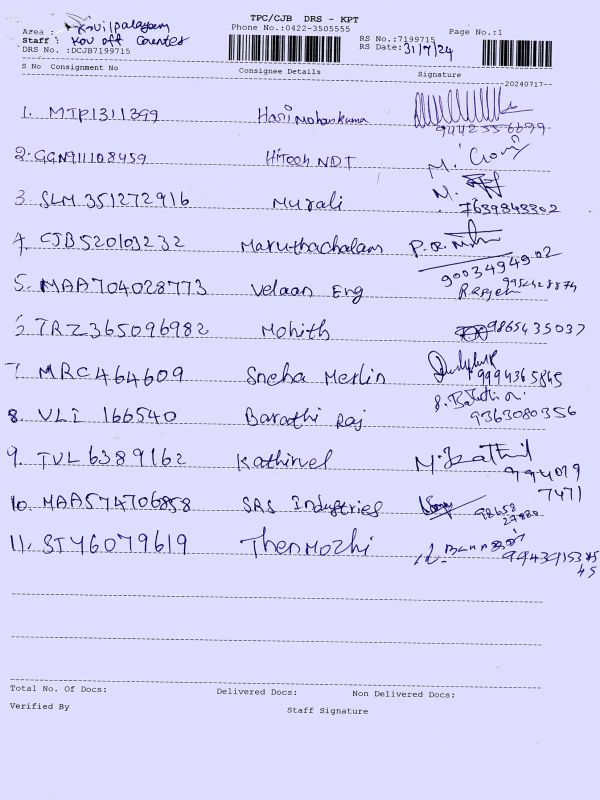 TPC/CJB DRS - KPT
Area : Kovilpalayam Phone No.:0422-3505555 RS No.:7199715 Page No.:1
Staff : Kov off Counter RS Date: 31/7/24
DRS No. :DCJB7199715
S No Consignment No Consignee Details Signature
20240717--
1. MTP1311399 Hari Mohankumar
2. GGN911108459 Hitech NDT
3. SLM 351272916 Murali 7639843302
4. CJB520103232 Maruthachalam 9003494902
5. MAA704028773 Velaan Eng
6. TRZ365096982 Mohith 9865435037
7. MRC464609 Sneha Merlin 9994365845
8. VLI 166540 Barathi Raj 9363080356
9. TVL6389162 Kathirvel M. Kathir
994019
7471
10. MAA574706858 SRS Industries
11. STY6079619 Thenmozhi
Total No. Of Docs: Delivered Docs: Non Delivered Docs:
Verified By Staff Signature